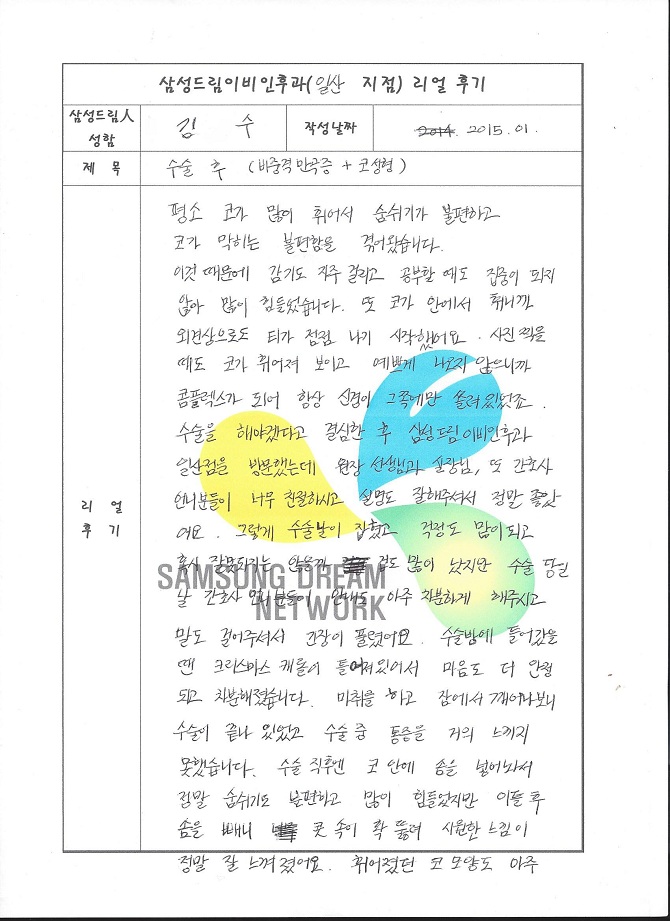 삼성드림이비인후과(일산 지점) 리얼 후기
삼성드림人 성함
김 수
작성날짜
2014. 2015.01.
제 목
수술 후 (비중격만곡증 + 코성형)
리 얼
후 기
평소 코가 많이 휘어서 숨쉬기가 불편하고
코가 막히는 불편함을 겪어왔습니다.
이것 때문에 감기도 자주 걸리고 공부할 때도 집중이 되지
않아 많이 힘들었습니다. 또 코가 안에서 휘니까
외견상으로도 티가 점점 나기 시작했어요. 사진 찍을
때도 코가 휘어져 보이고 예쁘게 나오지 않으니까
콤플렉스가 되어 항상 신경이 그쪽에만 쏠려있었죠.
수술을 해야겠다고 결심한 후 삼성드림이비인후과
일산점을 방문했는데 원장 선생님과 실장님, 또 간호사
언니분들이 너무 친절하시고 설명도 잘해주셔서 정말 좋았
어요. 그렇게 수술날이 잡혔고 걱정도 많이되고
혹시 잘못되지는 않을까 겁도 많이 났지만 수술 당일
날 간호사 언니분들이 안내도 아주 차분하게 해주시고
SAMSUNG DREAM
NETWORK
말도 걸어주셔서 긴장이 풀렸어요. 수술방에 들어갔을
땐 크리스마스 캐롤이 틀어져있어서 마음도 더 안정
되고 차분해졌습니다. 마취를 하고 잠에서 깨어나보니
수술이 끝나 있었고 수술 중 통증을 거의 느끼지
못했습니다. 수술 직후엔 코 안에 솜을 넣어놔서
정말 숨쉬기도 불편하고 많이 힘들었지만 이틀 후
솜을 빼니 콧 속이 확 뚫려 시원한 느낌이
정말 잘 느껴졌어요. 휘어졌던 코 모양도 아주